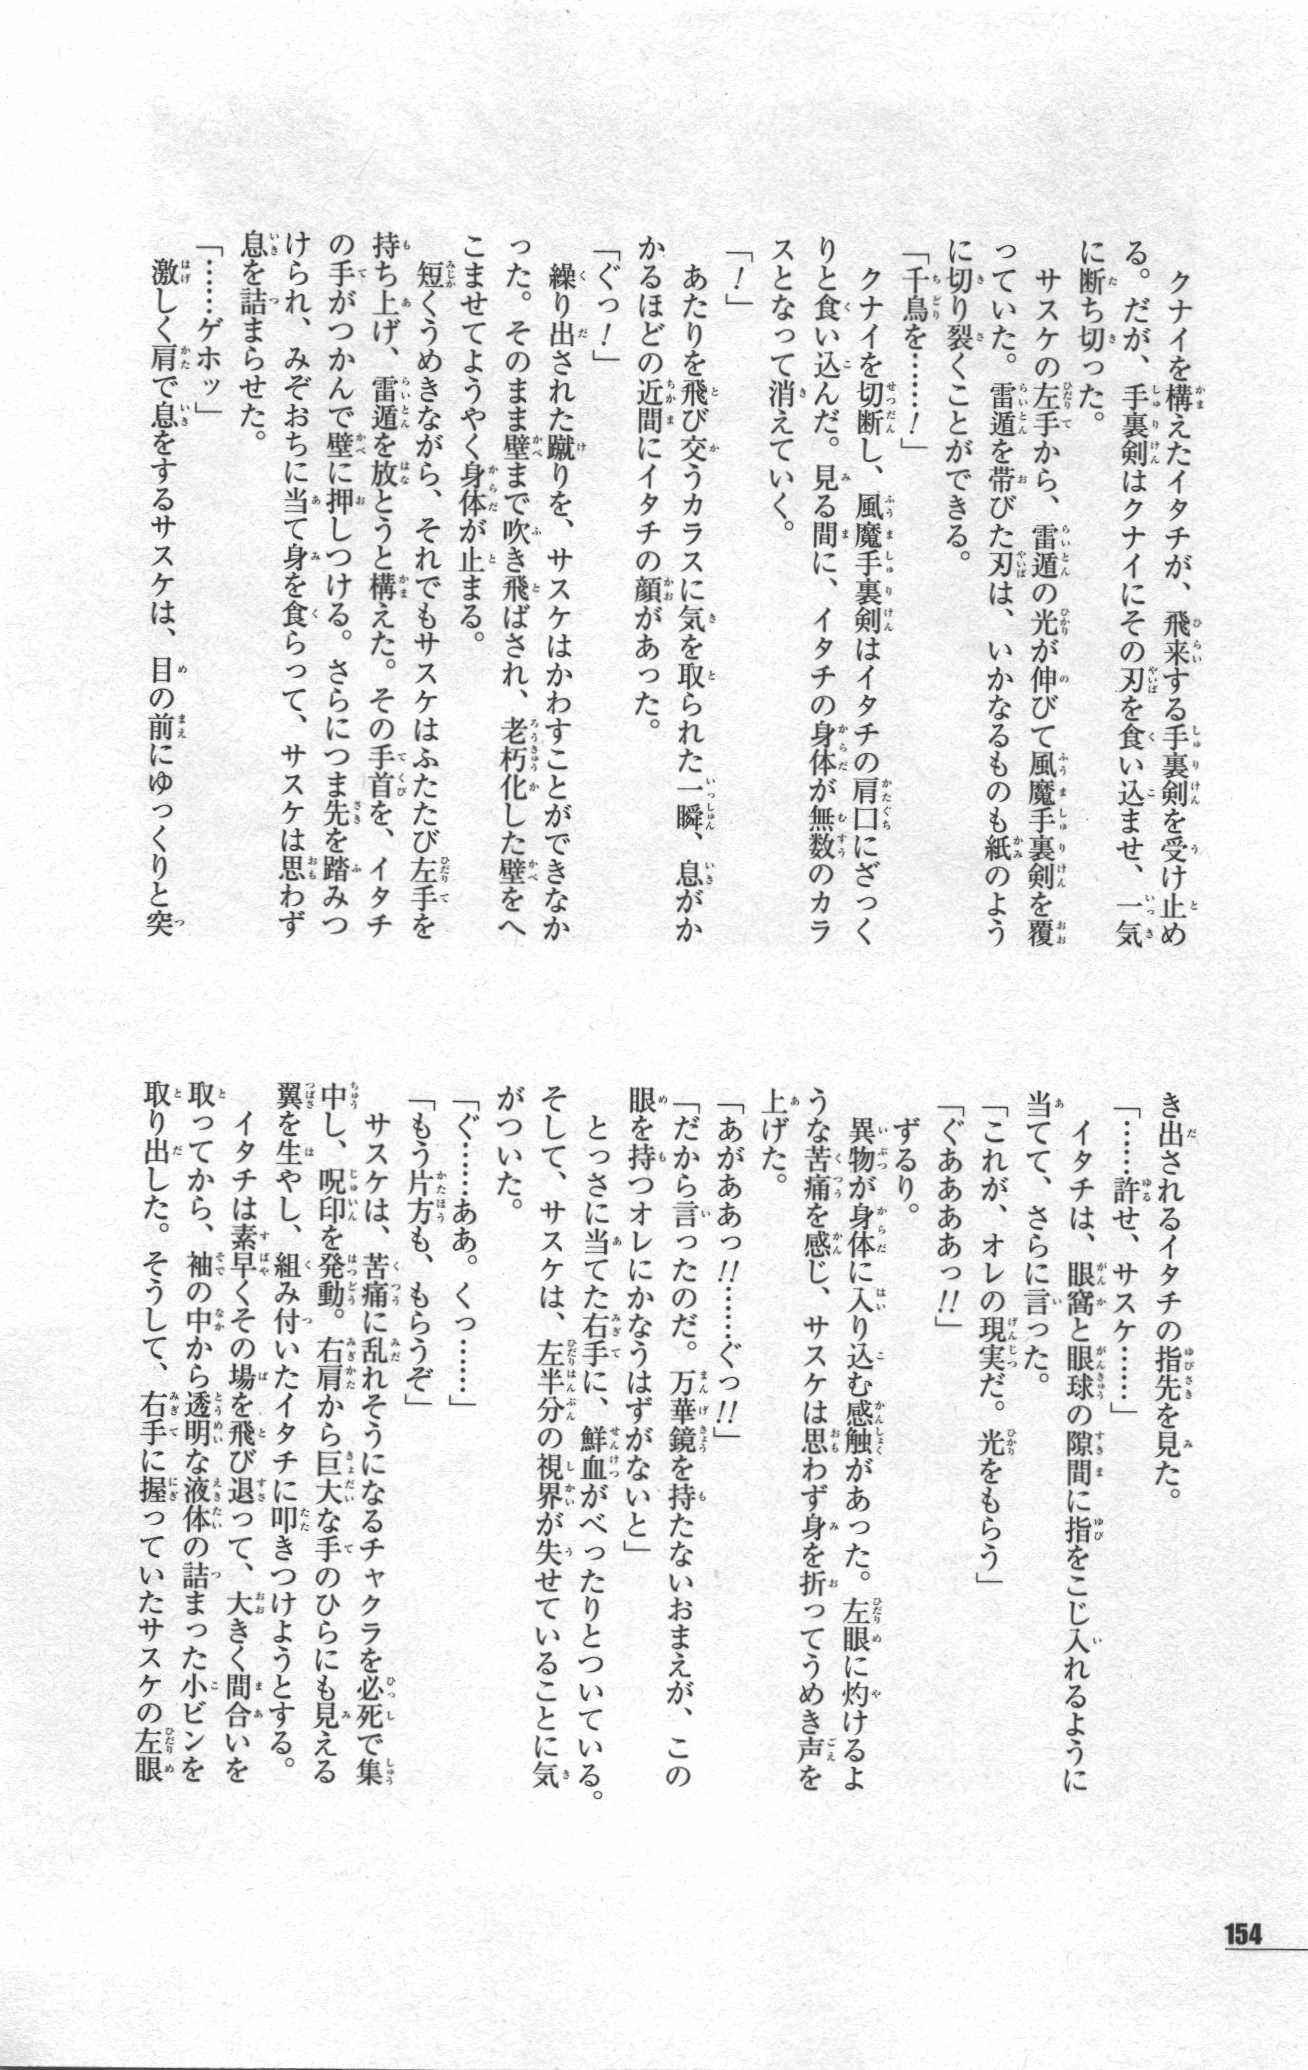 クナイを構えたイタチが、飛来する手裏剣を受け止め
る。だが、手裏剣はクナイにその刃を食い込ませ、一気
に断ち切った。
サスケの左手から、雷遁の光が伸びて風魔手裏剣を覆
っていた。雷遁を帯びた刃は、いかなるものも紙のよう
に切り裂くことができる。
「千鳥を……！」
クナイを切断し、風魔手裏剣はイタチの肩口にざっく
りと食い込んだ。見る間に、イタチの身体が無数のカラ
スとなって消えていく。
「！」
あたりを飛び交うカラスに気を取られた一瞬、息がか
かるほどの近間にイタチの顔があった。
「ぐっ！」
繰り出された蹴りを、サスケはかわすことができなか
った。そのまま壁まで吹き飛ばされ、老朽化した壁をへ
こませてようやく身体が止まる。
短くうめきながら、それでもサスケはふたたび左手を
持ち上げ、雷遁を放とうと構えた。その手首を、イタチ
の手がつかんで壁に押しつける。さらにつま先を踏みつ
けられ、みぞおちに当て身を食らって、サスケは思わず
息を詰まらせた。
「……ゲホッ」
激しく肩で息をするサスケは、目の前にゆっくりと突
き出されるイタチの指先を見た。
「……許せ、サスケ……」
イタチは、眼窩と眼球の隙間に指をこじ入れるように
当てて、さらに言った。
「これが、オレの現実だ。光をもらう」
「ぐあああっ!!」
ずるり。
異物が身体に入り込む感触があった。左眼に灼けるよ
うな苦痛を感じ、サスケは思わず身を折ってうめき声を
上げた。
「あがああっ!!……ぐっ!!」
「だから言ったのだ。万華鏡を持たないおまえが、この
眼を持つオレにかなうはずがないと」
とっさに当てた右手に、鮮血がべったりとついている。
そして、サスケは、左半分の視界が失せていることに気
がついた。
「ぐ……ああ。くっ……」
「もう片方も、もらうぞ」
サスケは、苦痛に乱れそうになるチャクラを必死で集
中し、呪印を発動。右肩から巨大な手のひらにも見える
翼を生やし、組み付いたイタチに叩きつけようとする。
イタチは素早くその場を飛び退って、大きく間合いを
取ってから、袖の中から透明な液体の詰まった小ビンを
取り出した。そうして、右手に握っていたサスケの左眼
154